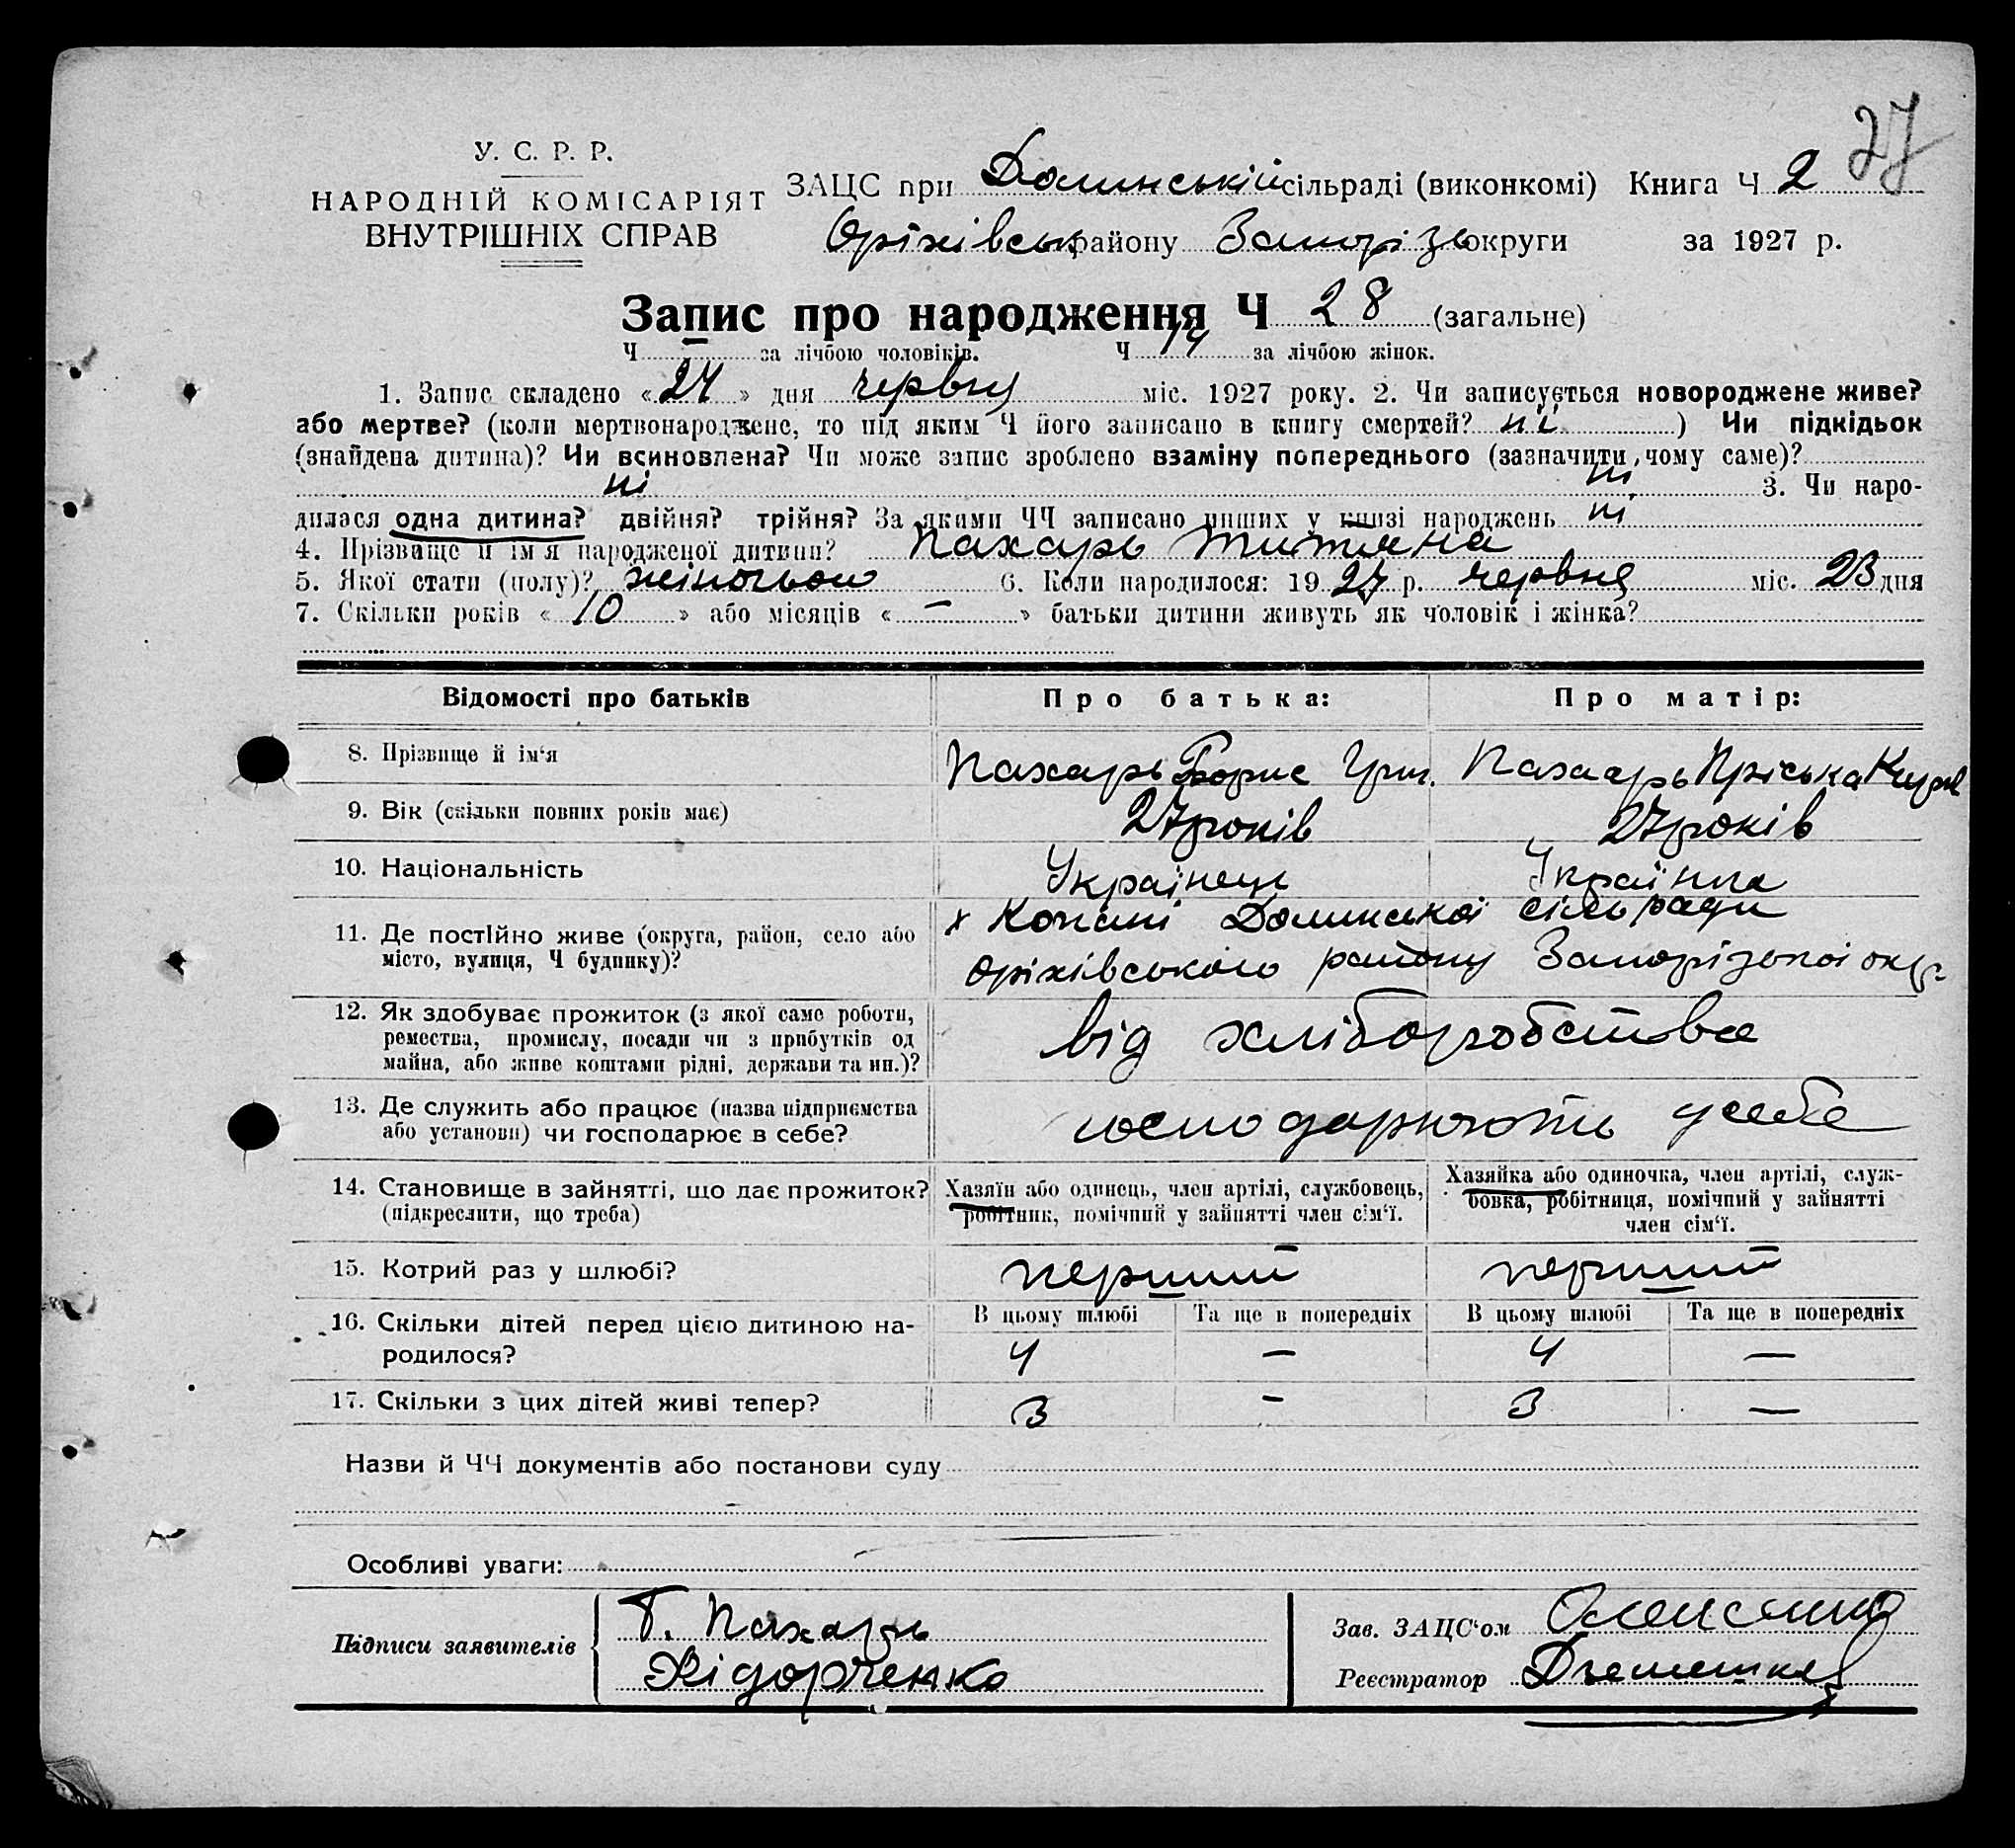 27
У. С. Р. Р.
НАРОДНІЙ КОМІСАРІЯТ
ВНУТРІШНІХ СПРАВ
ЗАЦС при Долинській сільраді (виконкомі) Книга Ч 2
Оріхівськ району Запорізь округи за 1927 р.
Запис про народження Ч 28 (загальне)
Ч — за лічбою чоловіків. Ч 14 за лічбою жінок.
1. Запис складено «24» дня червня міс. 1927 року. 2. Чи записується новороджене живе?
або мертве? (коли мертвонароджене, то під яким Ч його записано в книгу смертей? ні ) Чи підкідьок
(знайдена дитина)? Чи всиновлена? Чи може запис зроблено взаміну попереднього (зазначити, чому саме)?
ні ні 3. Чи наро-
дилася одна дитина? двійня? трійня? За якими ЧЧ записано инших у книзі народжень ні
4. Прізвище й ім'я народженої дитини? Пахарь Титяна
5. Якої стати (полу)? жіночьої 6. Коли народилося: 1927 р. червня міс. 23 дня
7. Скільки років «10» або місяців «—» батьки дитини живуть як чоловік і жінка?
Відомості про батьків Про батька: Про матір:
8. Прізвище й ім'я Пахарь Борис Григ. Пахарь Пріська Кирил
9. Вік (скільки повних років має) 27 років 27 років
10. Національність Українець Українка
11. Де постійно живе (округа, район, село або х Копані Долинської сільради
місто, вулиця, Ч будинку)? Оріхівського району Запорізької окр.
12. Як здобуває прожиток (з якої саме роботи,
ремества, промислу, посади чи з прибутків од від хліборобства
майна, або живе коштами рідні, держави та ин.)?
13. Де служить або працює (назва підприємства
або установи) чи господарює в себе? господарюють у себе
14. Становище в зайнятті, що дає прожиток? Хазяїн або одинець, член артілі, службовець, Хазяйка або одиночка, член артілі, служ-
(підкреслити, що треба) робітник, помічний у зайнятті член сім'ї. бовка, робітниця, помічний у зайнятті
член сім'ї.
15. Котрий раз у шлюбі? перший перший
16. Скільки дітей перед цією дитиною на- В цьому шлюбі Та ще в попередніх В цьому шлюбі Та ще в попередніх
родилося? 4 — 4 —
17. Скільки з цих дітей живі тепер? 3 — 3 —
Назви й ЧЧ документів або постанови суду
Особливі уваги:
Підписи заявителів Б. Пахарь Зав. ЗАЦС'ом
Хідорченко Реєстратор